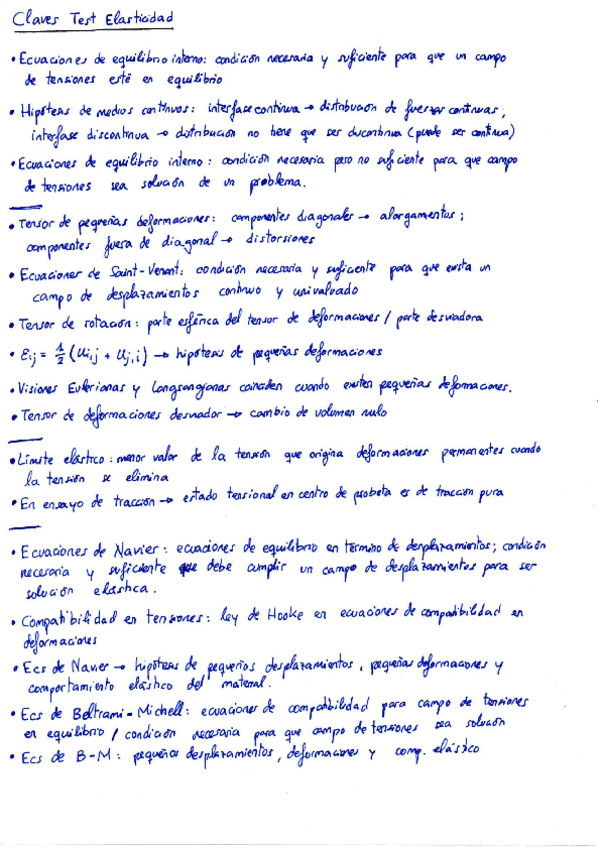 Claves Test Elasticidad
• Ecuaciones de equilibrio interno: condición necesaria y suficiente para que un campo
de tensiones esté en equilibrio
• Hipótesis de medios continuos: interfase continua → distribución de fuerzas continuas;
interfase discontinua → distribución no tiene que ser discontinua (puede ser continua)
• Ecuaciones de equilibrio interno: condición necesaria pero no suficiente para que campo
de tensiones sea solución de un problema.
• Tensor de pequeñas deformaciones: componentes diagonales → alargamientos;
componentes fuera de diagonal → distorsiones
• Ecuaciones de Saint-Venant: condición necesaria y suficiente para que exista un
campo de desplazamientos continuo y univaluado
• Tensor de rotación: parte esférica del tensor de deformaciones / parte desviadora
• εij = 1/2 (ui,j + uj,i) → hipótesis de pequeñas deformaciones
• Visiones Euleriana y Langrangiana coinciden cuando existen pequeñas deformaciones.
• Tensor de deformaciones desviador → cambio de volumen nulo
• Límite elástico: menor valor de la tensión que origina deformaciones permanentes cuando
la tensión se elimina
• En ensayo de tracción → estado tensional en centro de probeta es de tracción pura
• Ecuaciones de Navier: ecuaciones de equilibrio en término de desplazamientos; condición
necesaria y suficiente que debe cumplir un campo de desplazamientos para ser
solución elástica.
• Compatibilidad en tensiones: ley de Hooke en ecuaciones de compatibilidad en
deformaciones
• Ecs de Navier → hipótesis de pequeños desplazamientos, pequeñas deformaciones y
comportamiento elástico del material.
• Ecs de Beltrami-Michell: ecuaciones de compatibilidad para campo de tensiones
en equilibrio / condición necesaria para que campo de tensiones sea solución
• Ecs de B-M: pequeños desplazamientos, deformaciones y comp. elástico